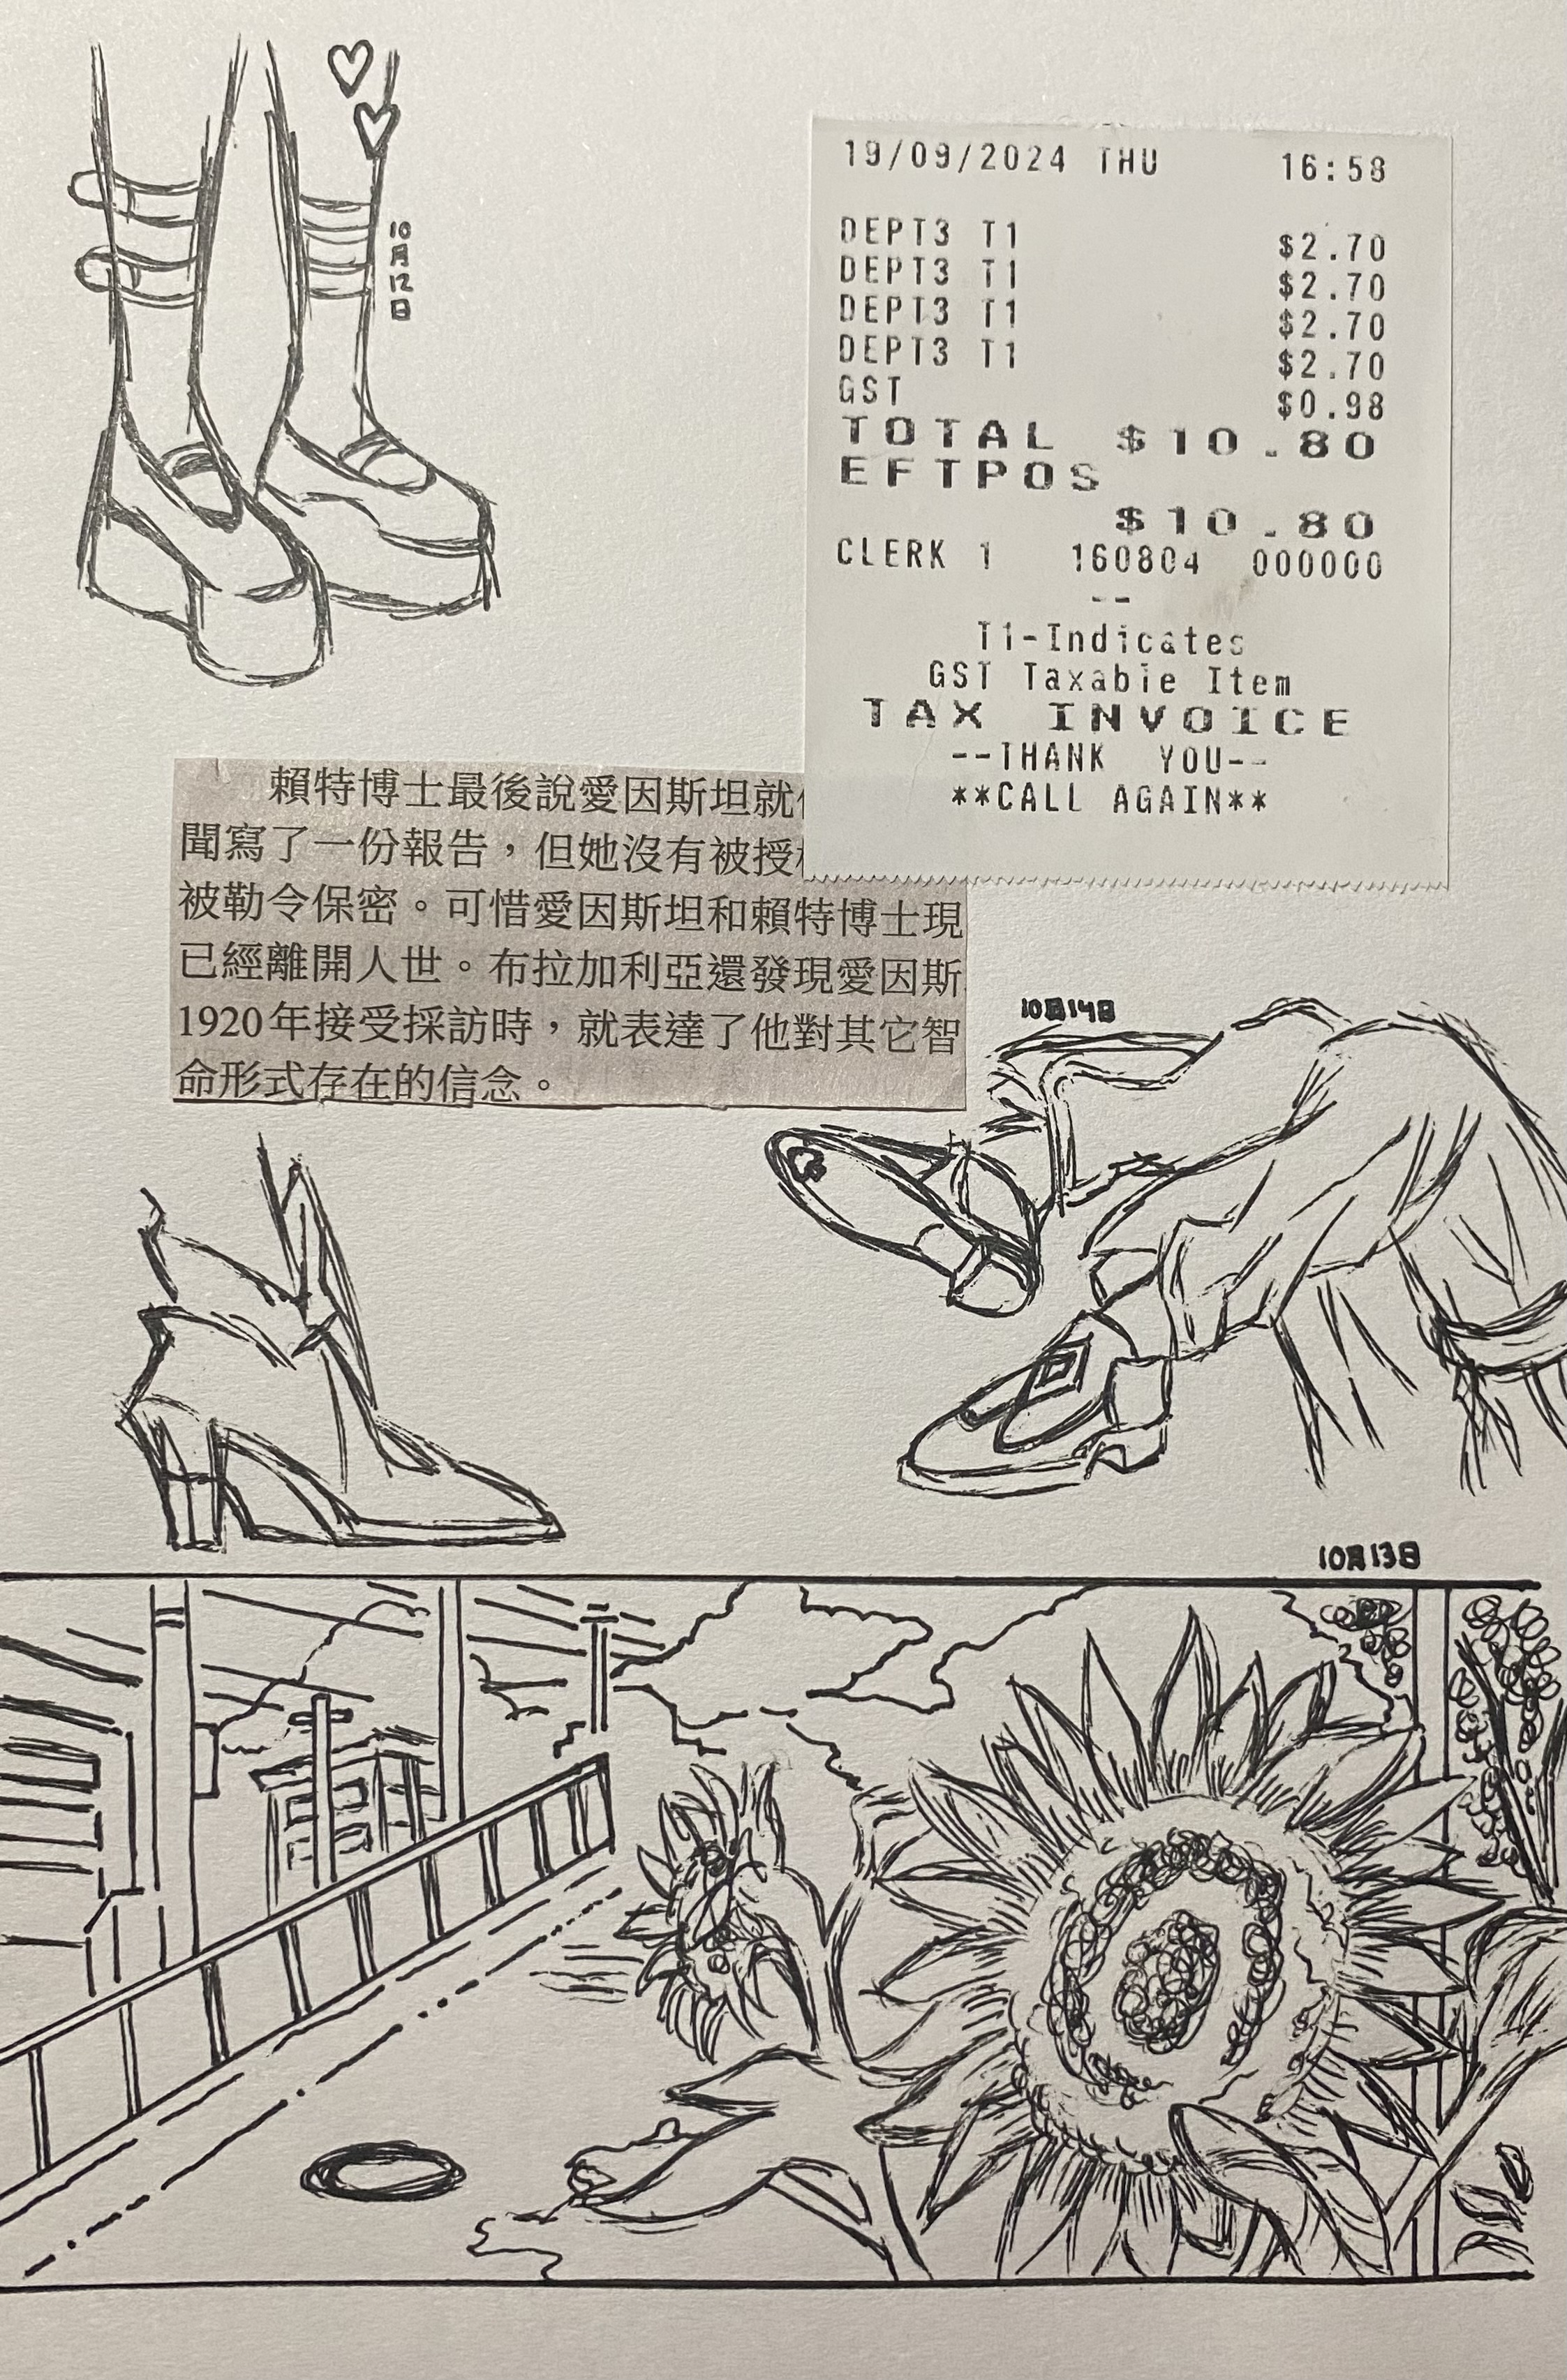 10
月
12
日
19/09/2024 THU 16:58
DEPT3 T1 $2.70
DEPT3 T1 $2.70
DEPT3 T1 $2.70
DEPT3 T1 $2.70
GST $0.98
TOTAL $10.80
EFTPOS
$10.80
CLERK 1 160804 000000
--
T1-Indicates
GST Taxable Item
TAX INVOICE
--THANK YOU--
**CALL AGAIN**
賴特博士最後說愛因斯坦就
聞寫了一份報告，但她沒有被授
被勒令保密。可惜愛因斯坦和賴特博士現
已經離開人世。布拉加利亞還發現愛因斯
1920年接受採訪時，就表達了他對其它智
命形式存在的信念。
10月14日
10月13日